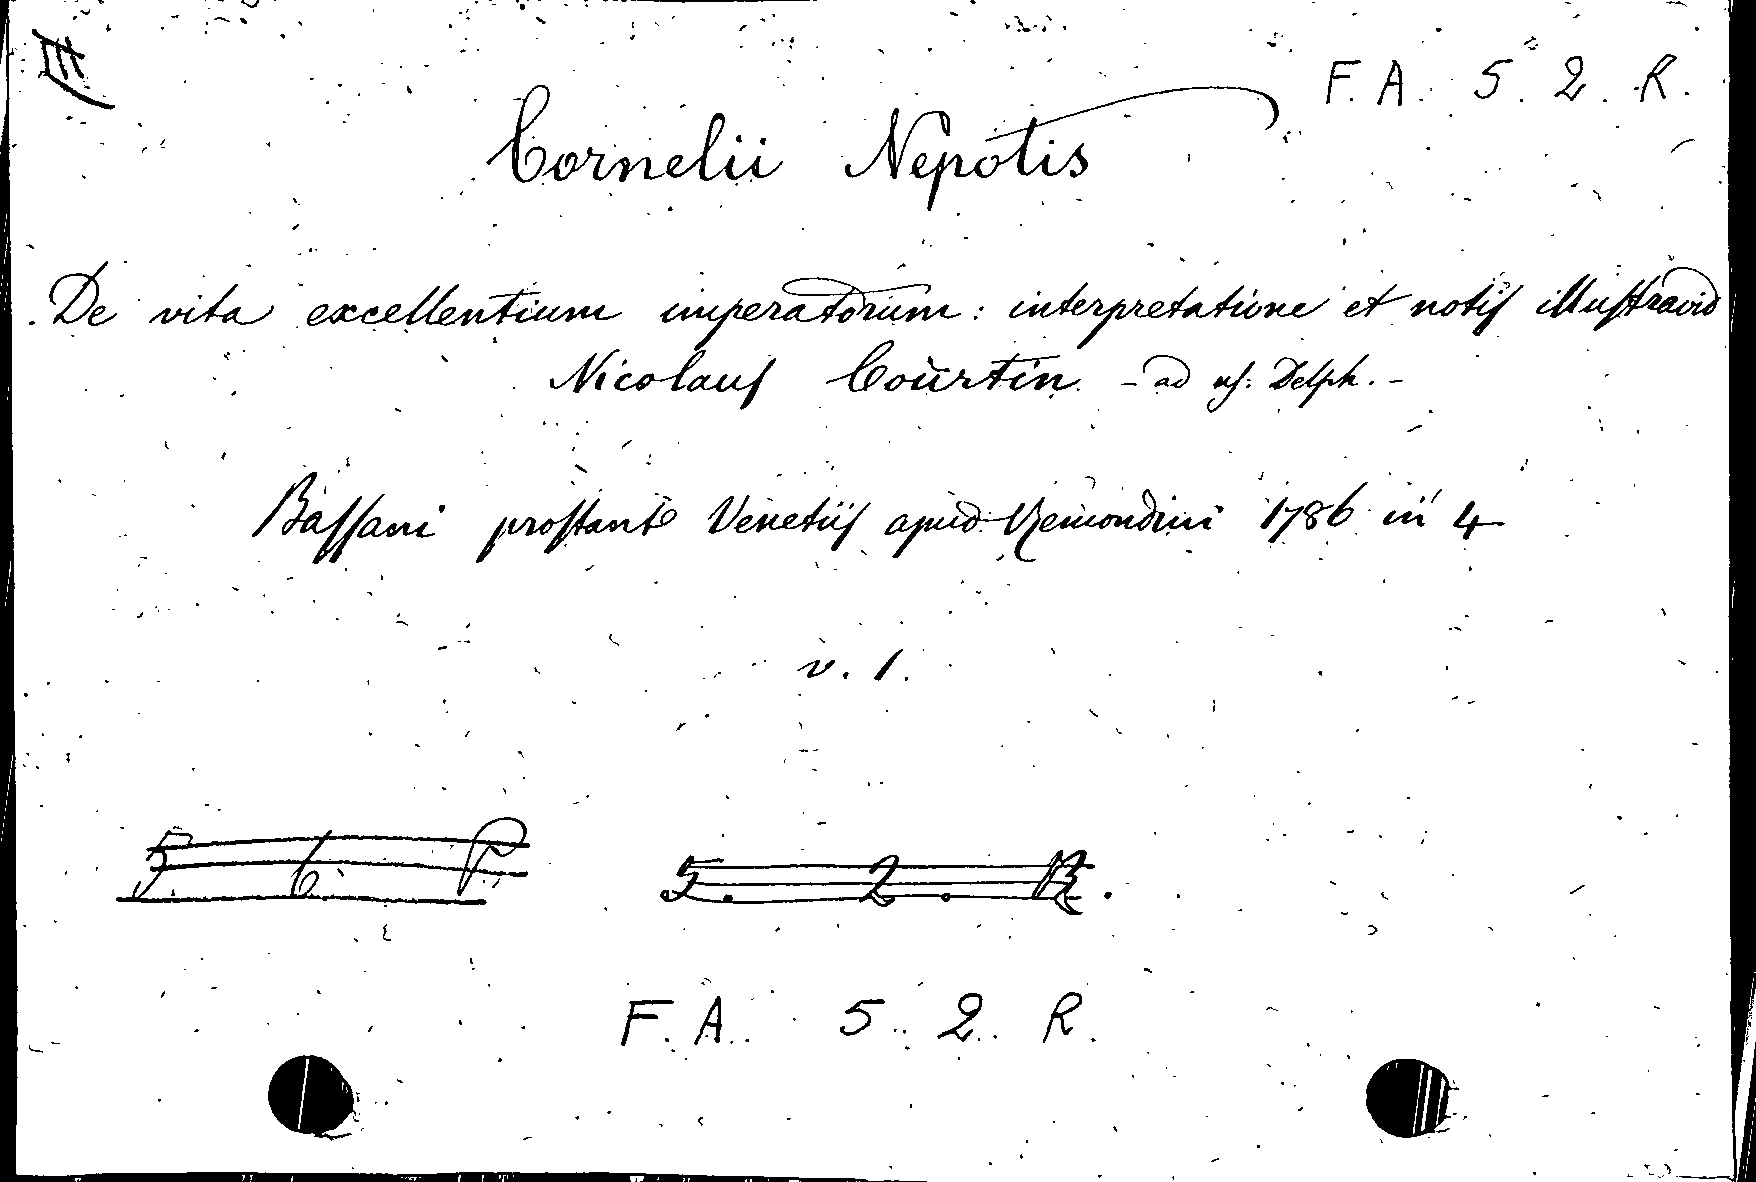 III
F. A. 5. 2. R.
Cornelii Nepotis
De vita excellentium imperatorum: interpretatione et notiſ illuſtravid
Nicolauſ Courtin - ad uſ: Delph. -
Baſſani proſtant Venetiiſ apud Remondini 1786 in 4
v. 1.
5. 6. P. 5. 2. R.
F. A. 5. 2. R.